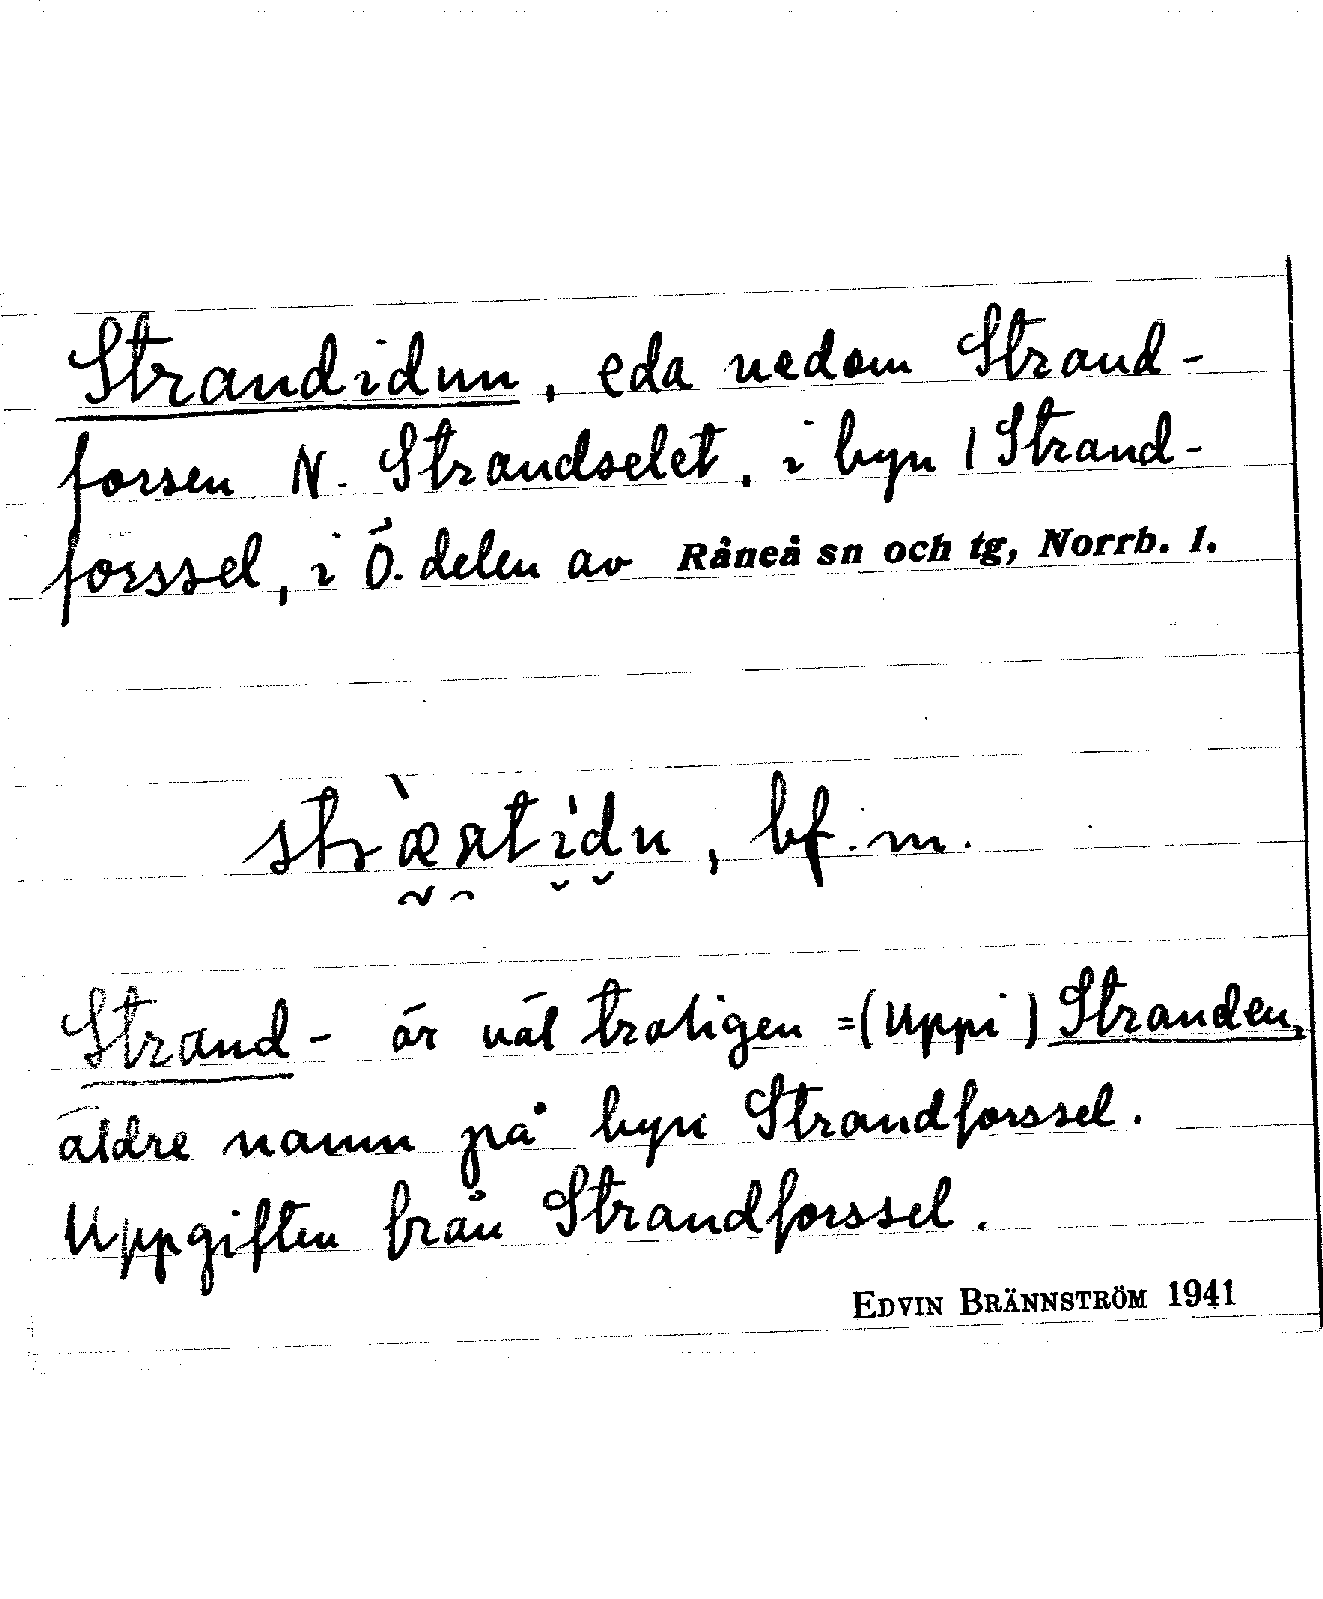 Strandidun, eda nedom Strand-
forsen N. Strandselet, i byn / Strand-
forssel, i Ö. delen av Råneå sn och tg, Norrb. l.
bf. m.
Strand- är väl troligen =(Uppi) Stranden,
äldre namn på byn Strandforssel.
Uppgiften från Strandforssel.
EDVIN BRÄNNSTRÖM 1941